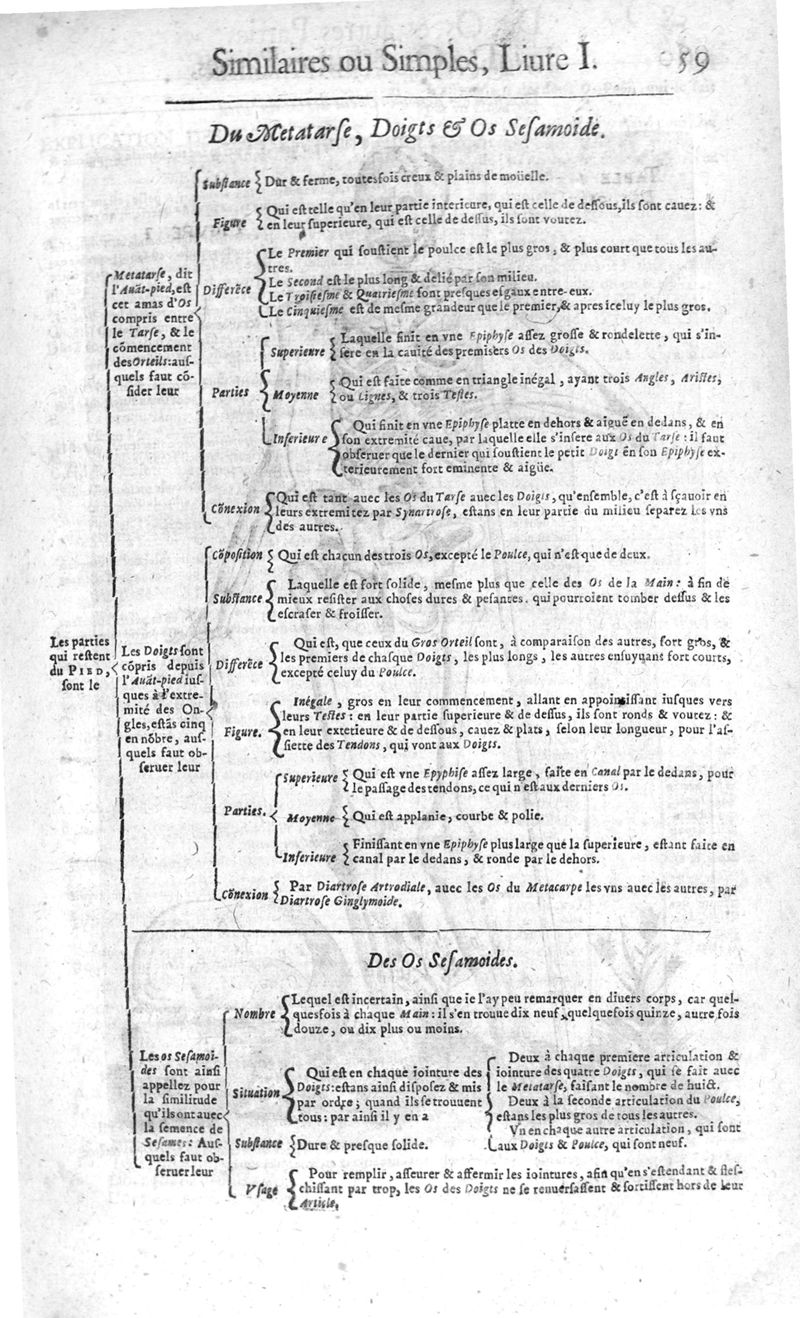 Similaires ou Simples, Liure I. 59
Du Metatarſe, Doigts & Os Seſamoide.
Les parties
qui reſtent
du PIED,
ſont le
Metatarſe, dit
l'Auãt-pied, eſt
cet amas d'Os
compris entre
le Tarſe, & le
cõmencement
des Orteils: auſ-
quels faut cõ-
ſider leur
Subſtance
Dur & ferme, toutesfois creux & plains de moüelle.
Figure
Qui eſt telle qu'en leur partie interieure, qui eſt celle de deſſous, ils ſont cauez: &
en leur ſuperieure, qui eſt celle de deſſus, ils ſont voutez.
Differẽce
Le Premier qui ſouſtient le poulce eſt le plus gros, & plus court que tous les au-
tres.
Le Second eſt le plus long & delié par ſon milieu.
Le Troiſieſme & Quatrieſme ſont preſques eſgaux entre-eux.
Le Cinquieſme eſt de meſme grandeur que le premier, & apres iceluy le plus gros.
Parties
Superieure
Laquelle finit en vne Epiphyſe aſſez groſſe & rondelette, qui s'in-
ſere en la cauité des premisers Os des Doigts.
Moyenne
Qui eſt faite comme en triangle inégal, ayant trois Angles, Ariſtes,
ou Lignes, & trois Teſtes.
Inferieure
Qui finit en vne Epiphyſe platte en dehors & aiguë en dedans, & en
ſon extremité caue, par laquelle elle s'inſere aux Os du Tarſe: il faut
obſeruer que le dernier qui ſouſtient le petit Doigt en ſon Epiphyſe ex-
terieurement fort eminente & aigüe.
Cõnexion
Qui eſt tant auec les Os du Tarſe auec les Doigts, qu'enſemble, c'eſt à ſçauoir en
leurs extremitez par Synartroſe, eſtans en leur partie du milieu ſeparez les vns
des autres.
Les Doigts ſont
cõpris depuis
l'Auãt-pied iuſ-
ques à l'extre-
mité des On-
gles, eſtãs cinq
en nõbre, auſ-
quels faut ob-
ſeruer leur
Cõpoſition
Qui eſt chacun des trois Os, excepté le Poulce, qui n'eſt que de deux.
Subſtance
Laquelle eſt fort ſolide, meſme plus que celle des Os de la Main: à fin de
mieux reſiſter aux choſes dures & peſantes, qui pourroient tomber deſſus & les
eſcraſer & froiſſer.
Differẽce
Qui eſt, que ceux du Gros Orteil ſont, à comparaiſon des autres, fort gros, &
les premiers de chaſque Doigts, les plus longs, les autres enſuyuans fort courts,
excepté celuy du Poulce.
Figure.
Inégale, gros en leur commencement, allant en appointiſſant iuſques vers
leurs Teſtes: en leur partie ſuperieure & de deſſus, ils ſont ronds & voutez: &
en leur exterieure & de deſſous, cauez & plats, ſelon leur longueur, pour l'aſ-
ſiette des Tendons, qui vont aux Doigts.
Parties.
Superieure
Qui eſt vne Epyphiſe aſſez large, faite en Canal par le dedans, pour
le paſſage des tendons, ce qui n'eſt aux derniers Os.
Moyenne
Qui eſt applanie, courbe & polie.
Inferieure
Finiſſant en vne Epiphyſe plus large que la ſuperieure, eſtant faite en
canal par le dedans, & ronde par le dehors.
Cõnexion
Par Diartroſe Artrodiale, auec les Os du Metacarpe les vns auec les autres, par
Diartroſe Ginglymoide.
Des Os Seſamoides.
Les os Seſamoi-
des ſont ainſi
appellez pour
la ſimilitude
qu'ils ont auec
la ſemence de
Seſames: Auſ-
quels faut ob-
ſeruer leur
Nombre
Lequel eſt incertain, ainſi que ie l'ay peu remarquer en diuers corps, car quel-
quesfois à chaque Main: il s'en trouue dix neuf, quelquefois quinze, autre fois
douze, ou dix plus ou moins.
Situation
Qui eſt en chaque iointure des
Doigts: eſtans ainſi diſpoſez & mis
par ordre; quand ils ſe trouuent
tous: par ainſi il y en a
Deux à chaque premiere articulation &
iointure des quatre Doigts, qui ſe fait auec
le Metatarſe, faiſant le nombre de huict.
Deux à la ſeconde articulation du Poulce,
eſtans les plus gros de tous les autres.
Vn en chaque autre articulation, qui ſont
aux Doigts & Poulce, qui ſont neuf.
Subſtance
Dure & preſque ſolide.
Vſage
Pour remplir, aſſeurer & affermir les iointures, afin qu'en s'eſtendant & fleſ-
chiſſant par trop, les Os des Doigts ne ſe renuerſaſſent & ſortiſſent hors de leur
Article.